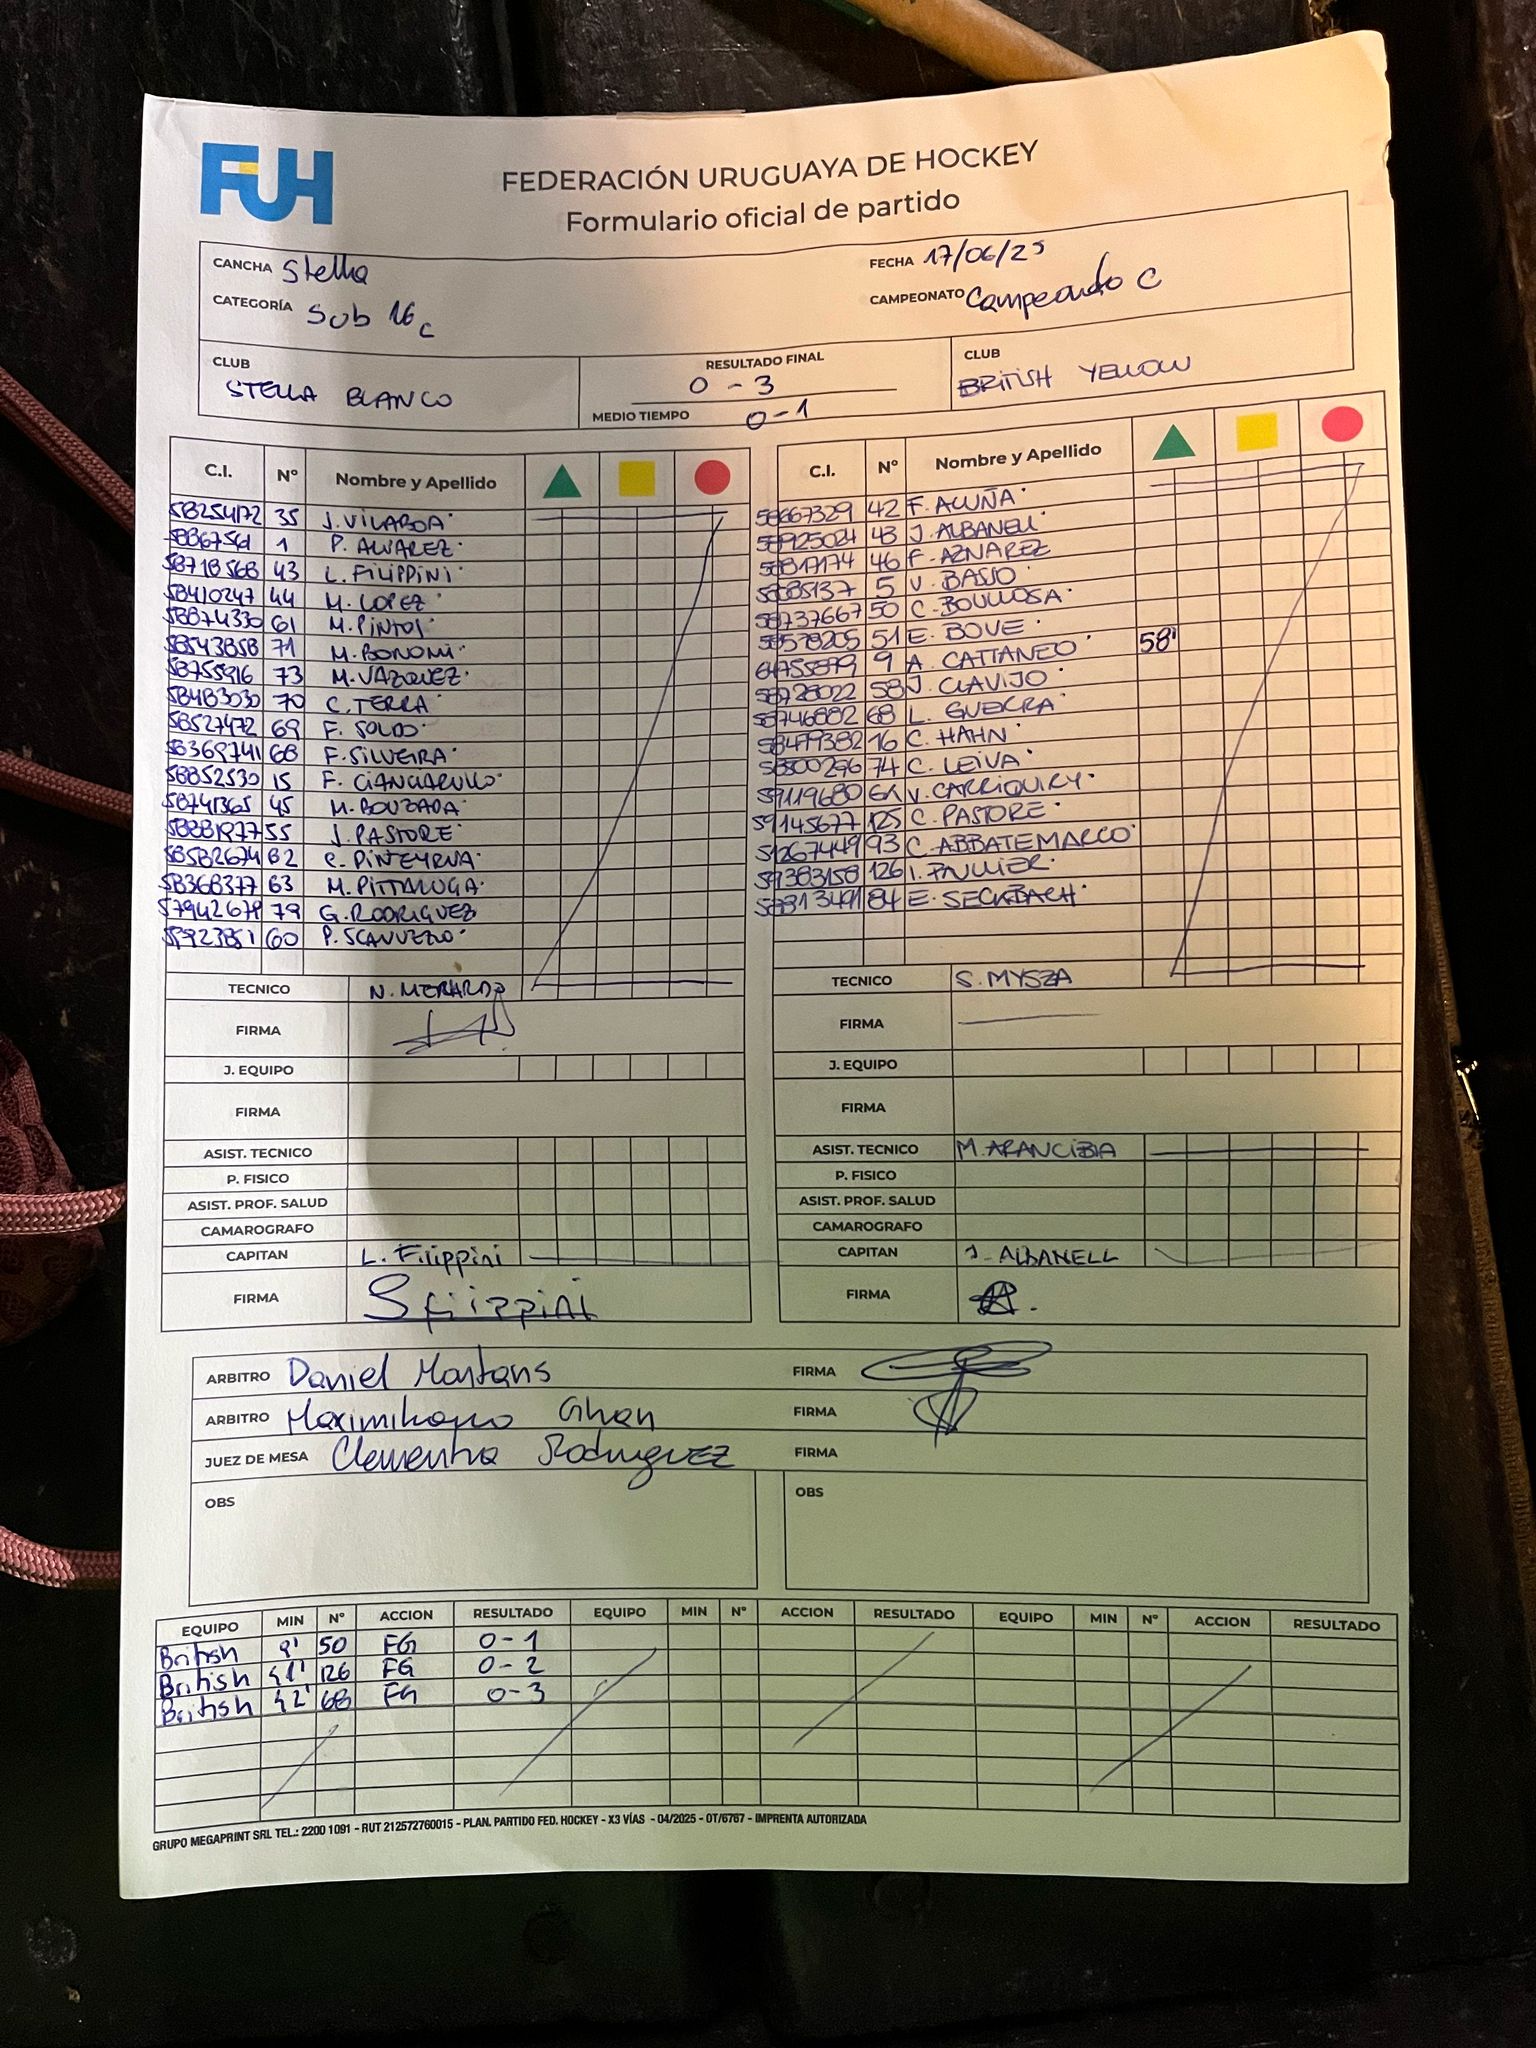 FUH
FEDERACIÓN URUGUAYA DE HOCKEY
Formulario oficial de partido
CANCHA Stella
FECHA 17/06/25
CATEGORÍA Sub 16 C
CAMPEONATO Campeonato C
CLUB
STELLA BLANCO
RESULTADO FINAL
0 - 3
MEDIO TIEMPO 0-1
CLUB
BRITISH YELLOW
C.I. Nº Nombre y Apellido
58254172 35 J. VILARDA
5886756 1 P. ALVAREZ
58718568 43 L. FILIPPINI
58410247 44 M. LOPEZ
58874330 61 M. PINTOS
58543858 71 M. BONOMI
58755916 73 M. VAZQUEZ
58483030 70 C. TERRA
58527472 69 F. SOLDO
58369741 68 F. SILVEIRA
58852530 15 F. CIANCIARULO
58741365 45 M. BOUZADA
58881977 55 J. PASTORE
58582674 82 C. PINEYRUA
58368377 63 M. PITTALUGA
57942679 79 G. RODRIGUEZ
60 P. SCAVUZZO
TECNICO N. MERARDO
FIRMA
J. EQUIPO
FIRMA
ASIST. TECNICO
P. FISICO
ASIST. PROF. SALUD
CAMAROGRAFO
CAPITAN L. Filippini
FIRMA
C.I. Nº Nombre y Apellido
58667329 42 F. ACUÑA
58925024 43 J. ALBANELL
58817174 46 F. AZNAREZ
5 V. BASSO
58737667 50 C. BOULLOSA
58578205 51 E. BOVE
9 A. CATTANEO 58'
58728022 58 J. CLAVIJO
58746882 68 L. GUERRA
58479382 16 C. HAHN
58500296 74 C. LEIVA
59119680 64 V. CARRIQUIRY
59145677 125 C. PASTORE
51267449 93 C. ABBATEMARCO
59383158 126 I. PAULLIER
58813491 84 E. SECKBACH
TECNICO S. MYSZA
FIRMA
J. EQUIPO
FIRMA
ASIST. TECNICO M. ARANCIBIA
P. FISICO
ASIST. PROF. SALUD
CAMAROGRAFO
CAPITAN J. ALBANELL
FIRMA
ARBITRO Daniel FIRMA
ARBITRO Maximiliano FIRMA
JUEZ DE MESA Clementina Rodriguez FIRMA
OBS
OBS
EQUIPO MIN Nº ACCION RESULTADO EQUIPO MIN Nº ACCION RESULTADO EQUIPO MIN Nº ACCION RESULTADO
British 9' 50 FG 0-1
British 41' 126 FG 0-2
British 42' 68 FG 0-3
GRUPO MEGAPRINT SRL TEL.: 2200 1091 - RUT 212572760015 - PLAN. PARTIDO FED. HOCKEY - X3 VÍAS - 04/2025 - OT/6767 - IMPRENTA AUTORIZADA